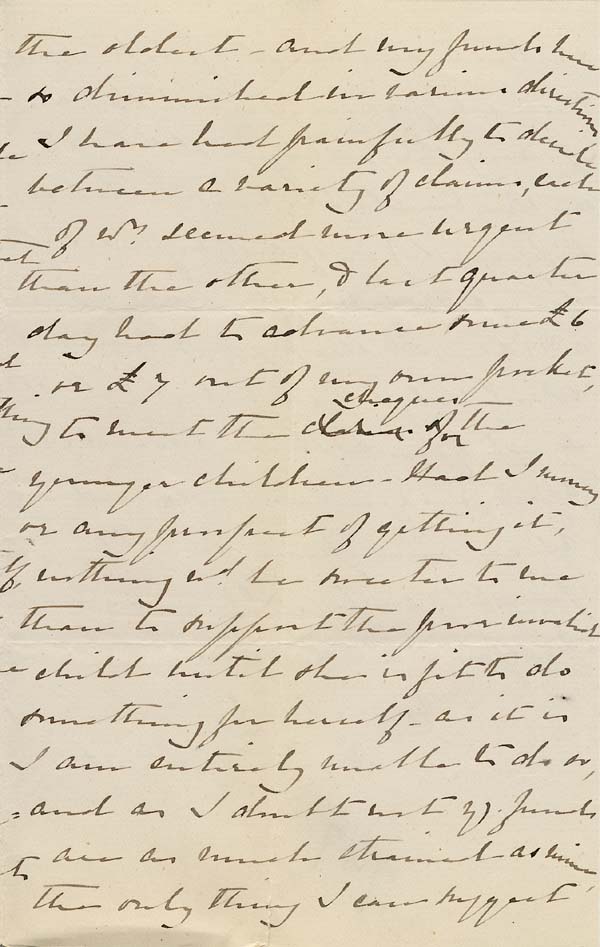 the oldest - and my funds have
so diminished in various directions
I have had painfully to decide
between a variety of claims, each
of wh. seemed more urgent
than the other, & last quarter
day had to advance some £6
or £7 out of my own pocket,
cheques
to meet the claims of for the
younger children - Had I money
or any prospect of getting it,
nothing wd. be sweeter to me
than to support the poor invalid
child until she is fit to do
something for herself - as it is
I am entirely unable to do so,
and as I doubt not yr. funds
are as much strained as mine,
the only thing I can suggest